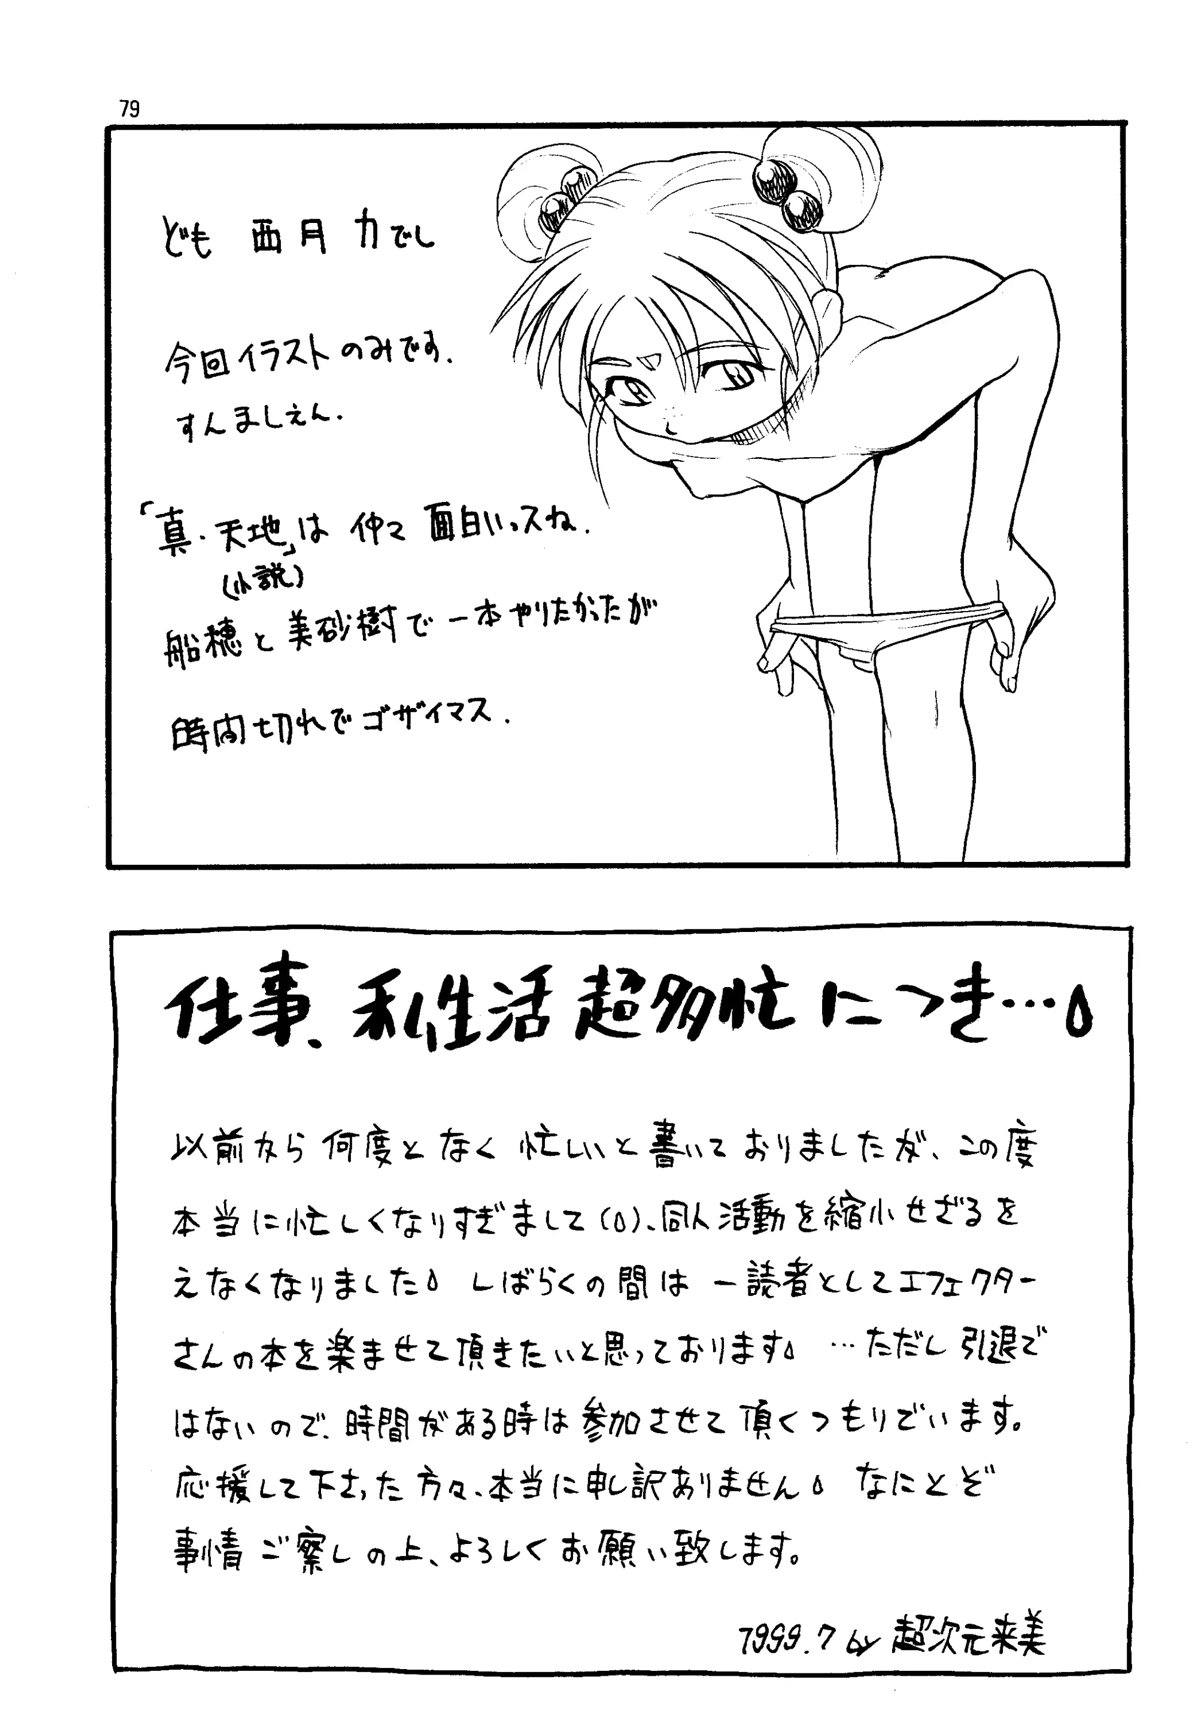 79
ども 西月力でし
今回イラストのみです.
すんましぇん.
「真・天地」は 仲々 面白いっスね.
(小説)
船穂と美砂樹で一本やりたかったが
時間切れでゴザイマス.
仕事、私生活超多忙につき…
以前から何度となく忙しいと書いておりましたが、この度
本当に忙しくなりすぎまして()、同人活動を縮小せざるを
えなくなりました しばらくの間は一読者としてエフェクター
さんの本を楽ませて頂きたいと思っております …ただし引退で
はないので、時間がある時は参加させて頂くつもりでいます。
応援して下さった方々、本当に申し訳ありません なにとぞ
事情ご察しの上、よろしくお願い致します。
1999.7 by 超次元来美